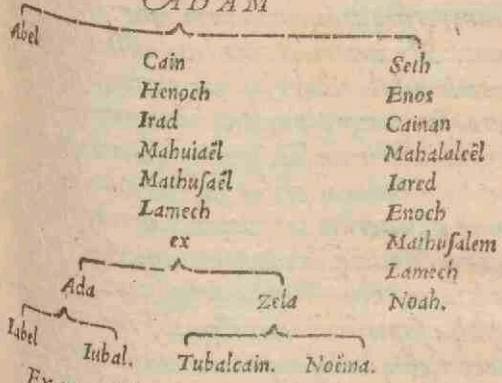 ADAM
Abel
Cain
Henoch
Irad
Mahuiaël
Mathuſaël
Lamech
ex
Ada
Zela
Iabel
Iubal.
Tubalcain.
Noëma.
Seth
Enos
Cainan
Mahalaleël
Iared
Enoch
Mathuſalem
Lamech
Noah.